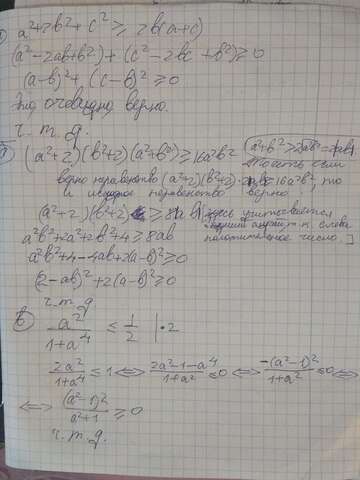 a²+2b²+c² ≥ 2b(a+c)
(a²-2ab+b²)+(c²-2bc+b²)≥0
(a-b)²+(c-b)²≥0
Что очевидно верно.
ч.т.д.
(a²+2)(b²+2)(a²+b²)≥16a²b² (a²+b²≥2ab
то есть если
верно неравенство (a²+2)(b²+2) ≥16a²b², то
и исходное неравенство верно
(a²+2)(b²+2) ≥ 8ab [здесь учитывается
т.к. слева
положительное число.]
a²b²+2a²+2b²+4≥8ab
a²b²+4-4ab+2(a-b)²≥0
(2-ab)²+2(a-b)²≥0
ч.т.д.
в) a²/(1+a⁴) ≤ 1/2 |·2
2a²/(1+a⁴) ≤ 1 ⟺ (2a²-1-a⁴)/(1+a²) ≤0 ⟺ -(a²-1)²/(1+a²) ≤0 ⟺
⟺ (a²-1)²/(a²+1) ≥ 0
ч.т.д.